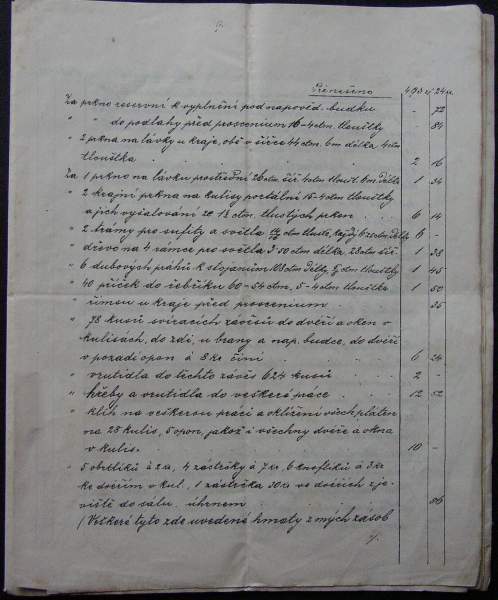 Přenešeno 493 zl 24 kr
Za prkno reservní k vyplnění pod napověd. budku - 72
" " do podlahy před prosceniem 16-4 ctm tloušťky - 84
" 2 prkna na lávky u kraje, obě v šířce 44 ctm. 6 m délka 4 ctm
tloušťka 2 16
Za 1 prkno na lávku prostřední 26 ctm šíř 4 ctm tloušt. 6 m délka 1 34
" 2 krajní prkna na kulisy portální 15-4 ctm tloušťky
a jich vyřezování ze 1½ ctm tlustých prken 6 14
" 2 trámy pro sufity a světla ctm tlusté, každý délka 6 -
" dřevo na 4 rámce pro světla 3·50 ctm délka, 28 ctm šíř. 1 38
" 6 dubových prahů k stojanům 108 ctm délky, ctm tloušťky 1 45
" 40 příček do řebříku 60-54 ctm, 5-4 ctm tloušťka 1 50
" římsu u kraje před prosceniem 35
" 78 kusů svíracích závěsů do dveří a oken v
kulisách, do zdi, u brány a nap. budce, do dveří
v pozadí opon á 8 kr činí 6 24
" vrutidla do těchto závěs 624 kusů 2 -
" hřeby a vrutidla do veškeré práce 12 52
" klih na veškerou práci a oklížení všech pláten
na 28 kulis, 5 opon, jakož i všechny dvéře a okna
v kulis. 10 -
" 5 obrtlíků á 2 kr, 4 zástrčky á 7 kr, 6 knoflíků á 3 kr
ke dveřím v kul., 1 zástrčka 30 kr ve dveřích z je-
viště do sálu, úhrnem 86
(Veškeré tyto zde uvedené hmoty z mých zásob